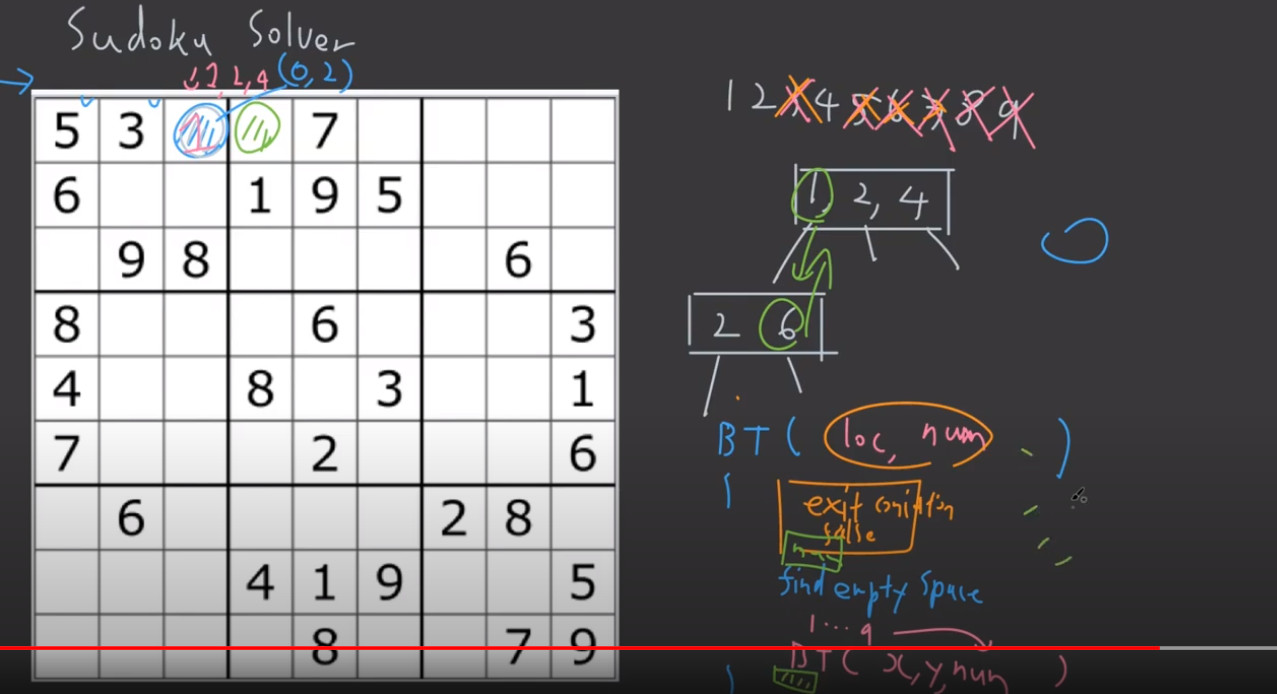 Sudoku Solver
1, 2, 4 (0, 2)
5 3 1 7
6 1 9 5
9 8 6
8 6 3
4 8 3 1
7 2 6
6 2 8
4 1 9 5
8 7 9
1 2 3 4 5 6 7 8 9
1, 2, 4
2 6
BT( loc, num )
exit condition
false
find empty space
1 ... 9
BT( x, y, num )